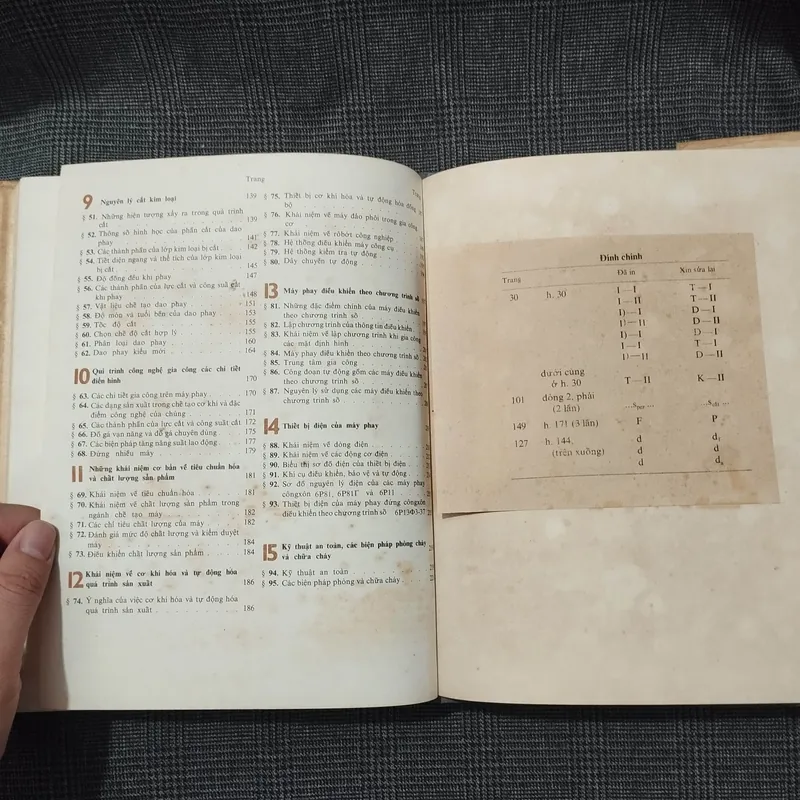 Trang
9 Nguyên lý cắt kim loại 139
§ 51. Những hiện tượng xảy ra trong quá trình
cắt 139
§ 52. Thông số hình học của phần cắt của dao
phay 141
§ 53. Các thành phần của lớp kim loại bị cắt 142
§ 54. Tiết diện ngang và thể tích của lớp kim loại
bị cắt 145
§ 55. Độ đồng đều khi phay 147
§ 56. Các thành phần của lực cắt và công suất cắt
khi phay 148
§ 57. Vật liệu chế tạo dao phay 151
§ 58. Độ mòn và tuổi bền của dao phay 153
§ 59. Tốc độ cắt 155
§ 60. Chọn chế độ cắt hợp lý 159
§ 61. Phân loại dao phay 161
§ 62. Dao phay kiểu mới 164
10 Qui trình công nghệ gia công các chi tiết
điển hình 170
§ 63. Các chi tiết gia công trên máy phay 170
§ 64. Các dạng sản xuất trong chế tạo cơ khí và đặc
điểm công nghệ của chúng 171
§ 65. Các thành phần của lực cắt và công suất cắt 175
§ 66. Đồ gá vạn năng và đồ gá chuyên dùng 175
§ 67. Các biện pháp tăng năng suất lao động 177
§ 68. Đứng nhiều máy 179
11 Những khái niệm cơ bản về tiêu chuẩn hóa
và chất lượng sản phẩm 181
§ 69. Khái niệm về tiêu chuẩn hóa 181
§ 70. Khái niệm về chất lượng sản phẩm trong
ngành chế tạo máy 182
§ 71. Các chỉ tiêu chất lượng của máy 182
§ 72. Đánh giá mức độ chất lượng và kiểm duyệt
máy 184
§ 73. Điều khiển chất lượng sản phẩm 184
12 Khái niệm về cơ khí hóa và tự động hóa
quá trình sản xuất 186
§ 74. Ý nghĩa của việc cơ khí hóa và tự động hóa
quá trình sản xuất 186
§ 75. Thiết bị cơ khí hóa và tự động hóa đồng
bộ
§ 76. Khái niệm về máy đảo phôi trong gia công
cơ
§ 77. Khái niệm về rôbốt công nghiệp
§ 78. Hệ thống điều khiển máy công cụ
§ 79. Hệ thống kiểm tra tự động
§ 80. Dây chuyền tự động
13 Máy phay điều khiển theo chương trình số
§ 81. Những đặc điểm chính của máy phay
điều khiển theo chương trình số
§ 82. Lập chương trình của thông tin điều khiển
§ 83. Khái niệm về lập chương trình khi gia công
các mặt định hình
§ 84. Máy phay điều khiển theo chương trình số
§ 85. Trung tâm gia công
§ 86. Công đoạn tự động gồm các máy điều khiển
theo chương trình số
§ 87. Nguyên lý sử dụng các máy điều khiển theo
chương trình số
14 Thiết bị điện của máy phay
§ 88. Khái niệm về dòng điện
§ 89. Khái niệm về các động cơ điện
§ 90. Biểu thị sơ đồ điện của thiết bị điện
§ 91. Khí cụ điều khiển, bảo vệ và tự động
§ 92. Sơ đồ nguyên lý điện của các máy phay
côngxôn 6P81, 6P81Г và 6P11
§ 93. Thiết bị điện của máy phay đứng côngxôn
điều khiển theo chương trình số 6P13Ф3-37
15 Kỹ thuật an toàn, các biện pháp phòng cháy
và chữa cháy
§ 94. Kỹ thuật an toàn
§ 95. Các biện pháp phòng và chữa cháy
Đính chính
Trang Đã in Xin sửa lại
30 h. 30 I—I T—I
I—II T—II
D—I
D—II
D—I
I—I T—I
D—II
dưới cùng
ở h. 30 T—II K—II
101 dòng 2, phải
(2 lần)
149 h. 171 (3 lần) F P
127 h. 144, d d₁
(trên xuống) d d
d